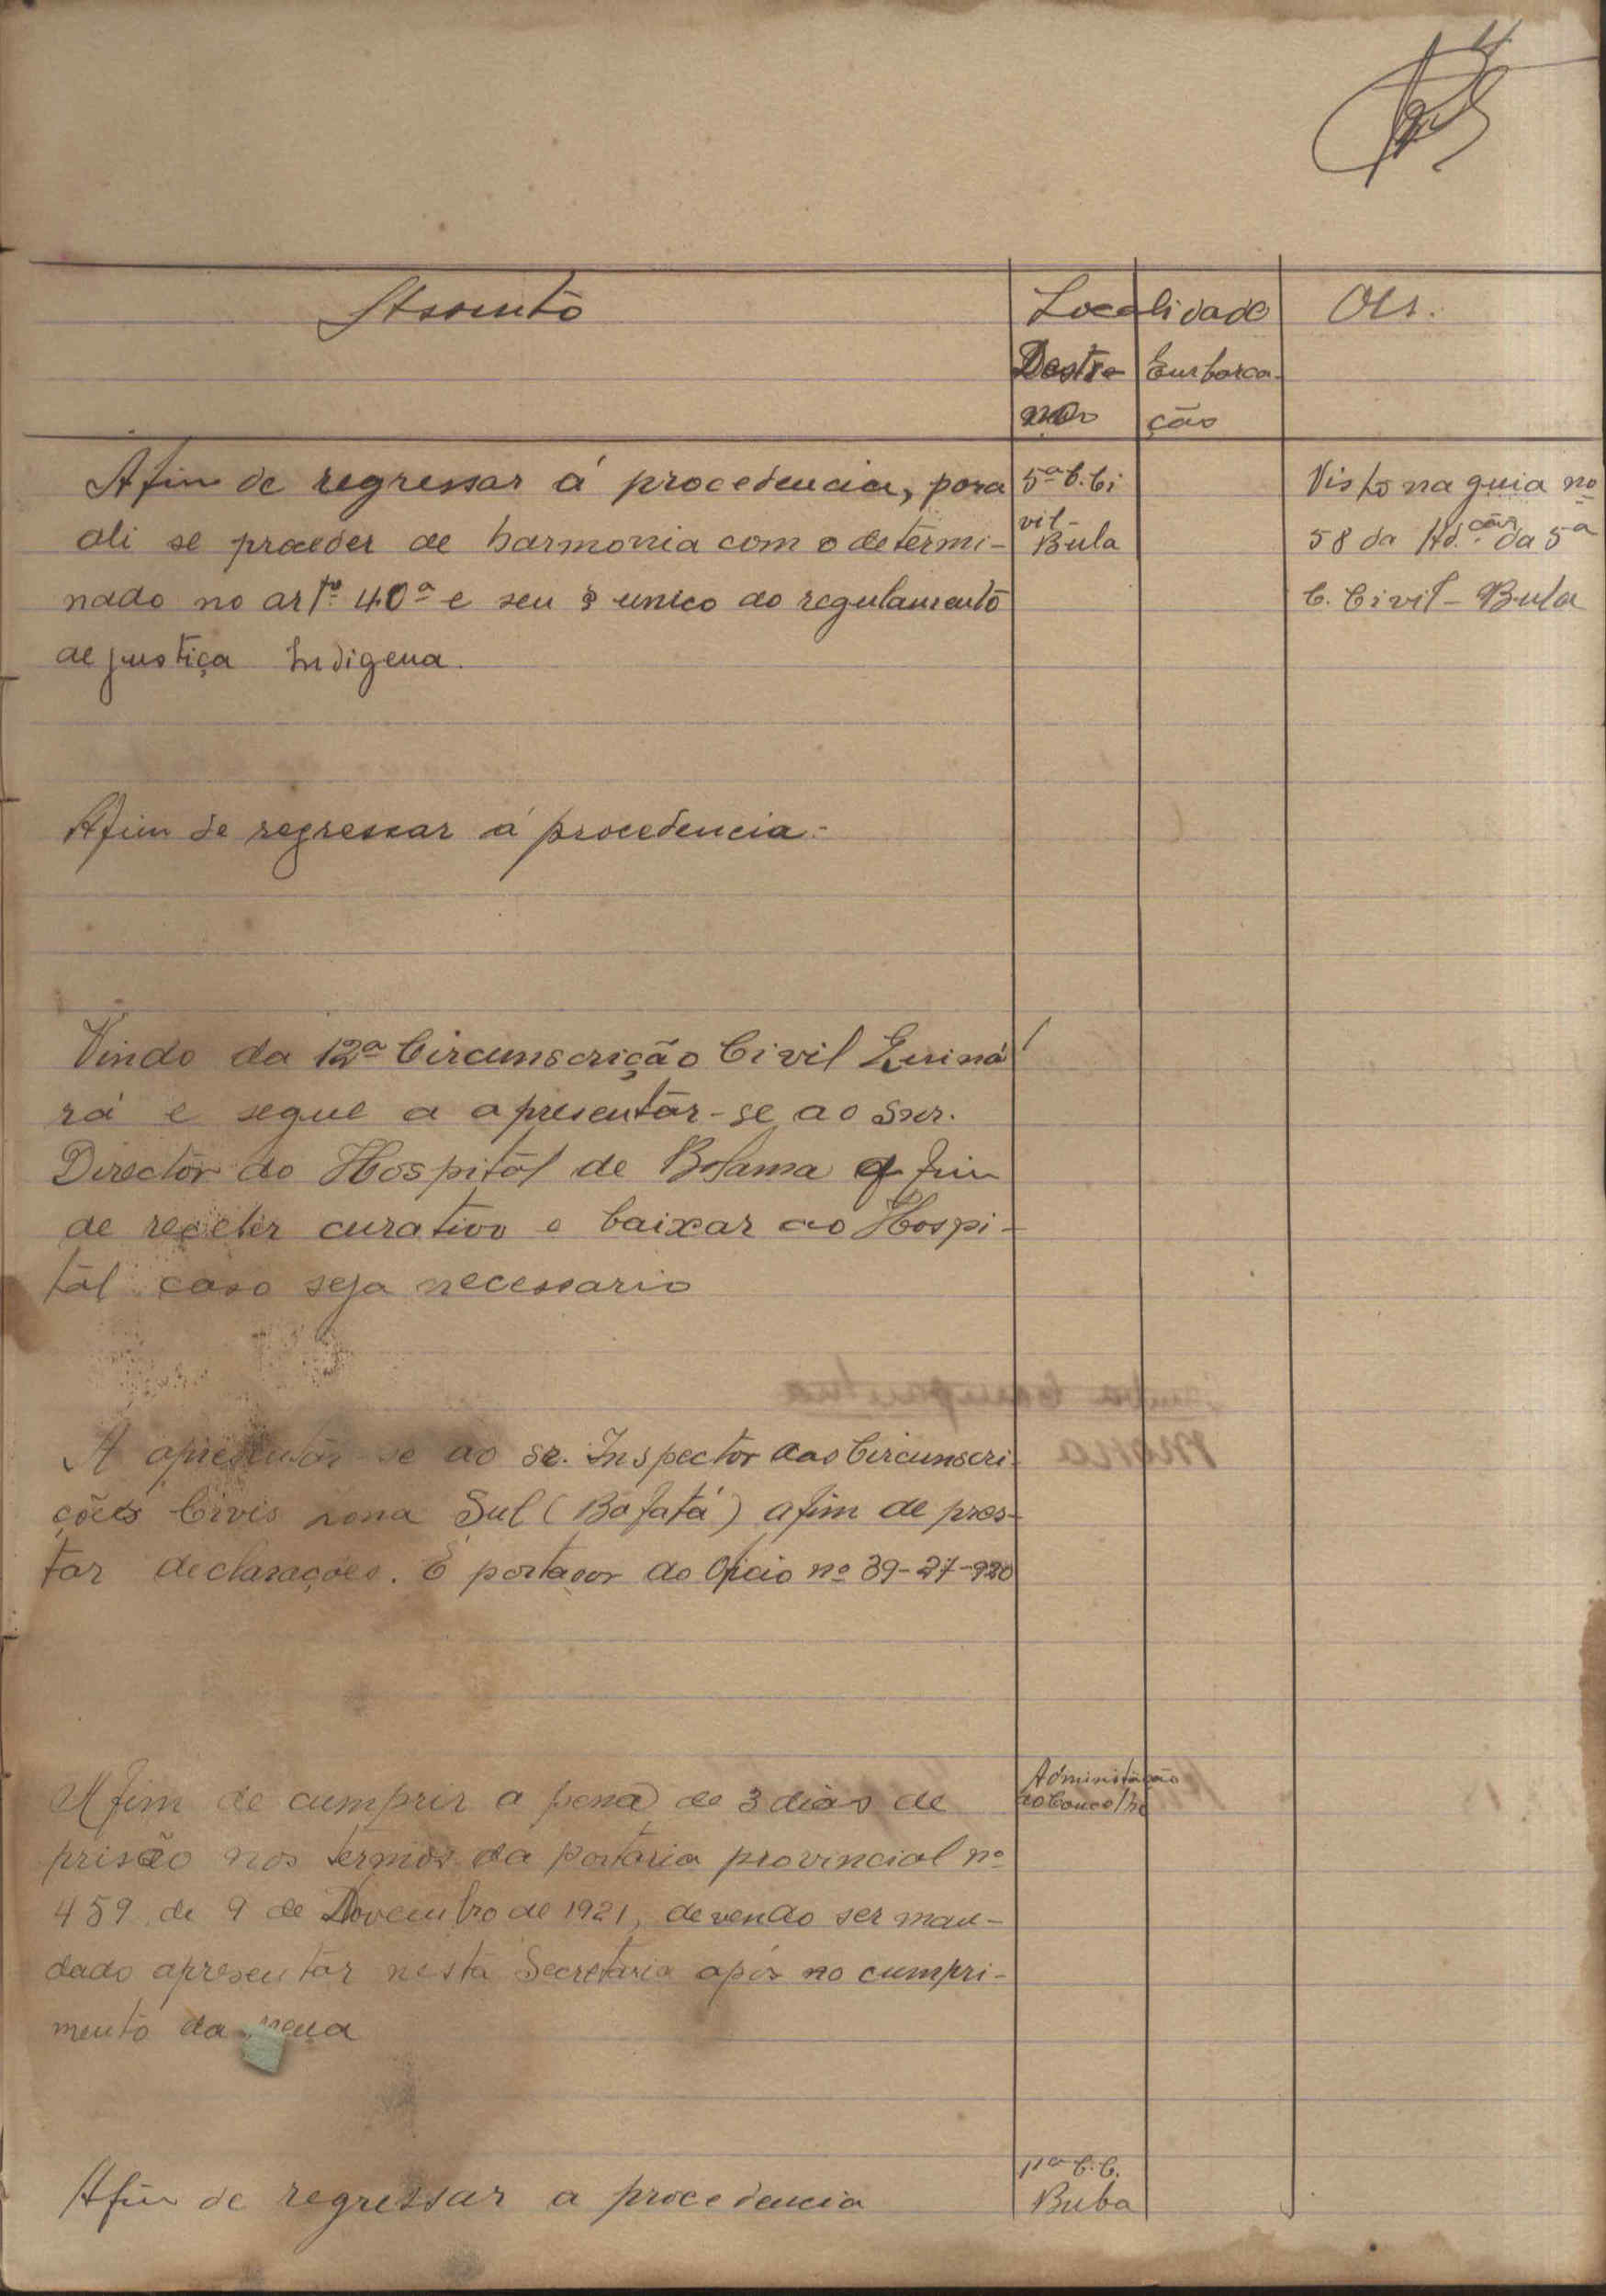 4
Assunto
Localidade
Obs.
Destino
Embarcação
Afim de regressar á procedencia, para
ali se proceder de harmonia com o determi-
nado no artº 40º e seu § unico do regulamento
de justiça Indigena.
5ª C. Ci
vil-
Bula
Visto na guia nº
58 da Ad.ção da 5ª
C. Civil - Bula
Afim de regressar á procedencia.-
Vindo da 12ª Circunscrição Civil
rá e segue a apresentar-se ao Snr.
Director do Hospital de Bolama afim
de receber curativo e baixar ao Hospi-
tal caso seja necessario
A apresentar-se ao sr. Inspector das Circunscri-
ções Civis zona Sul (Bafatá) afim de pres-
tar declarações. É portador do Oficio nº 39-27-920
Afim de cumprir a pena de 3 dias de
prisão nos termos da portaria provincial nº
459 de 9 de Novembro de 1921, devendo ser man-
dado apresentar nesta Secretaria após no cumpri-
mento da pena
Administração
do Concelho
Afim de regressar a procedencia
11ª C. C.
Buba